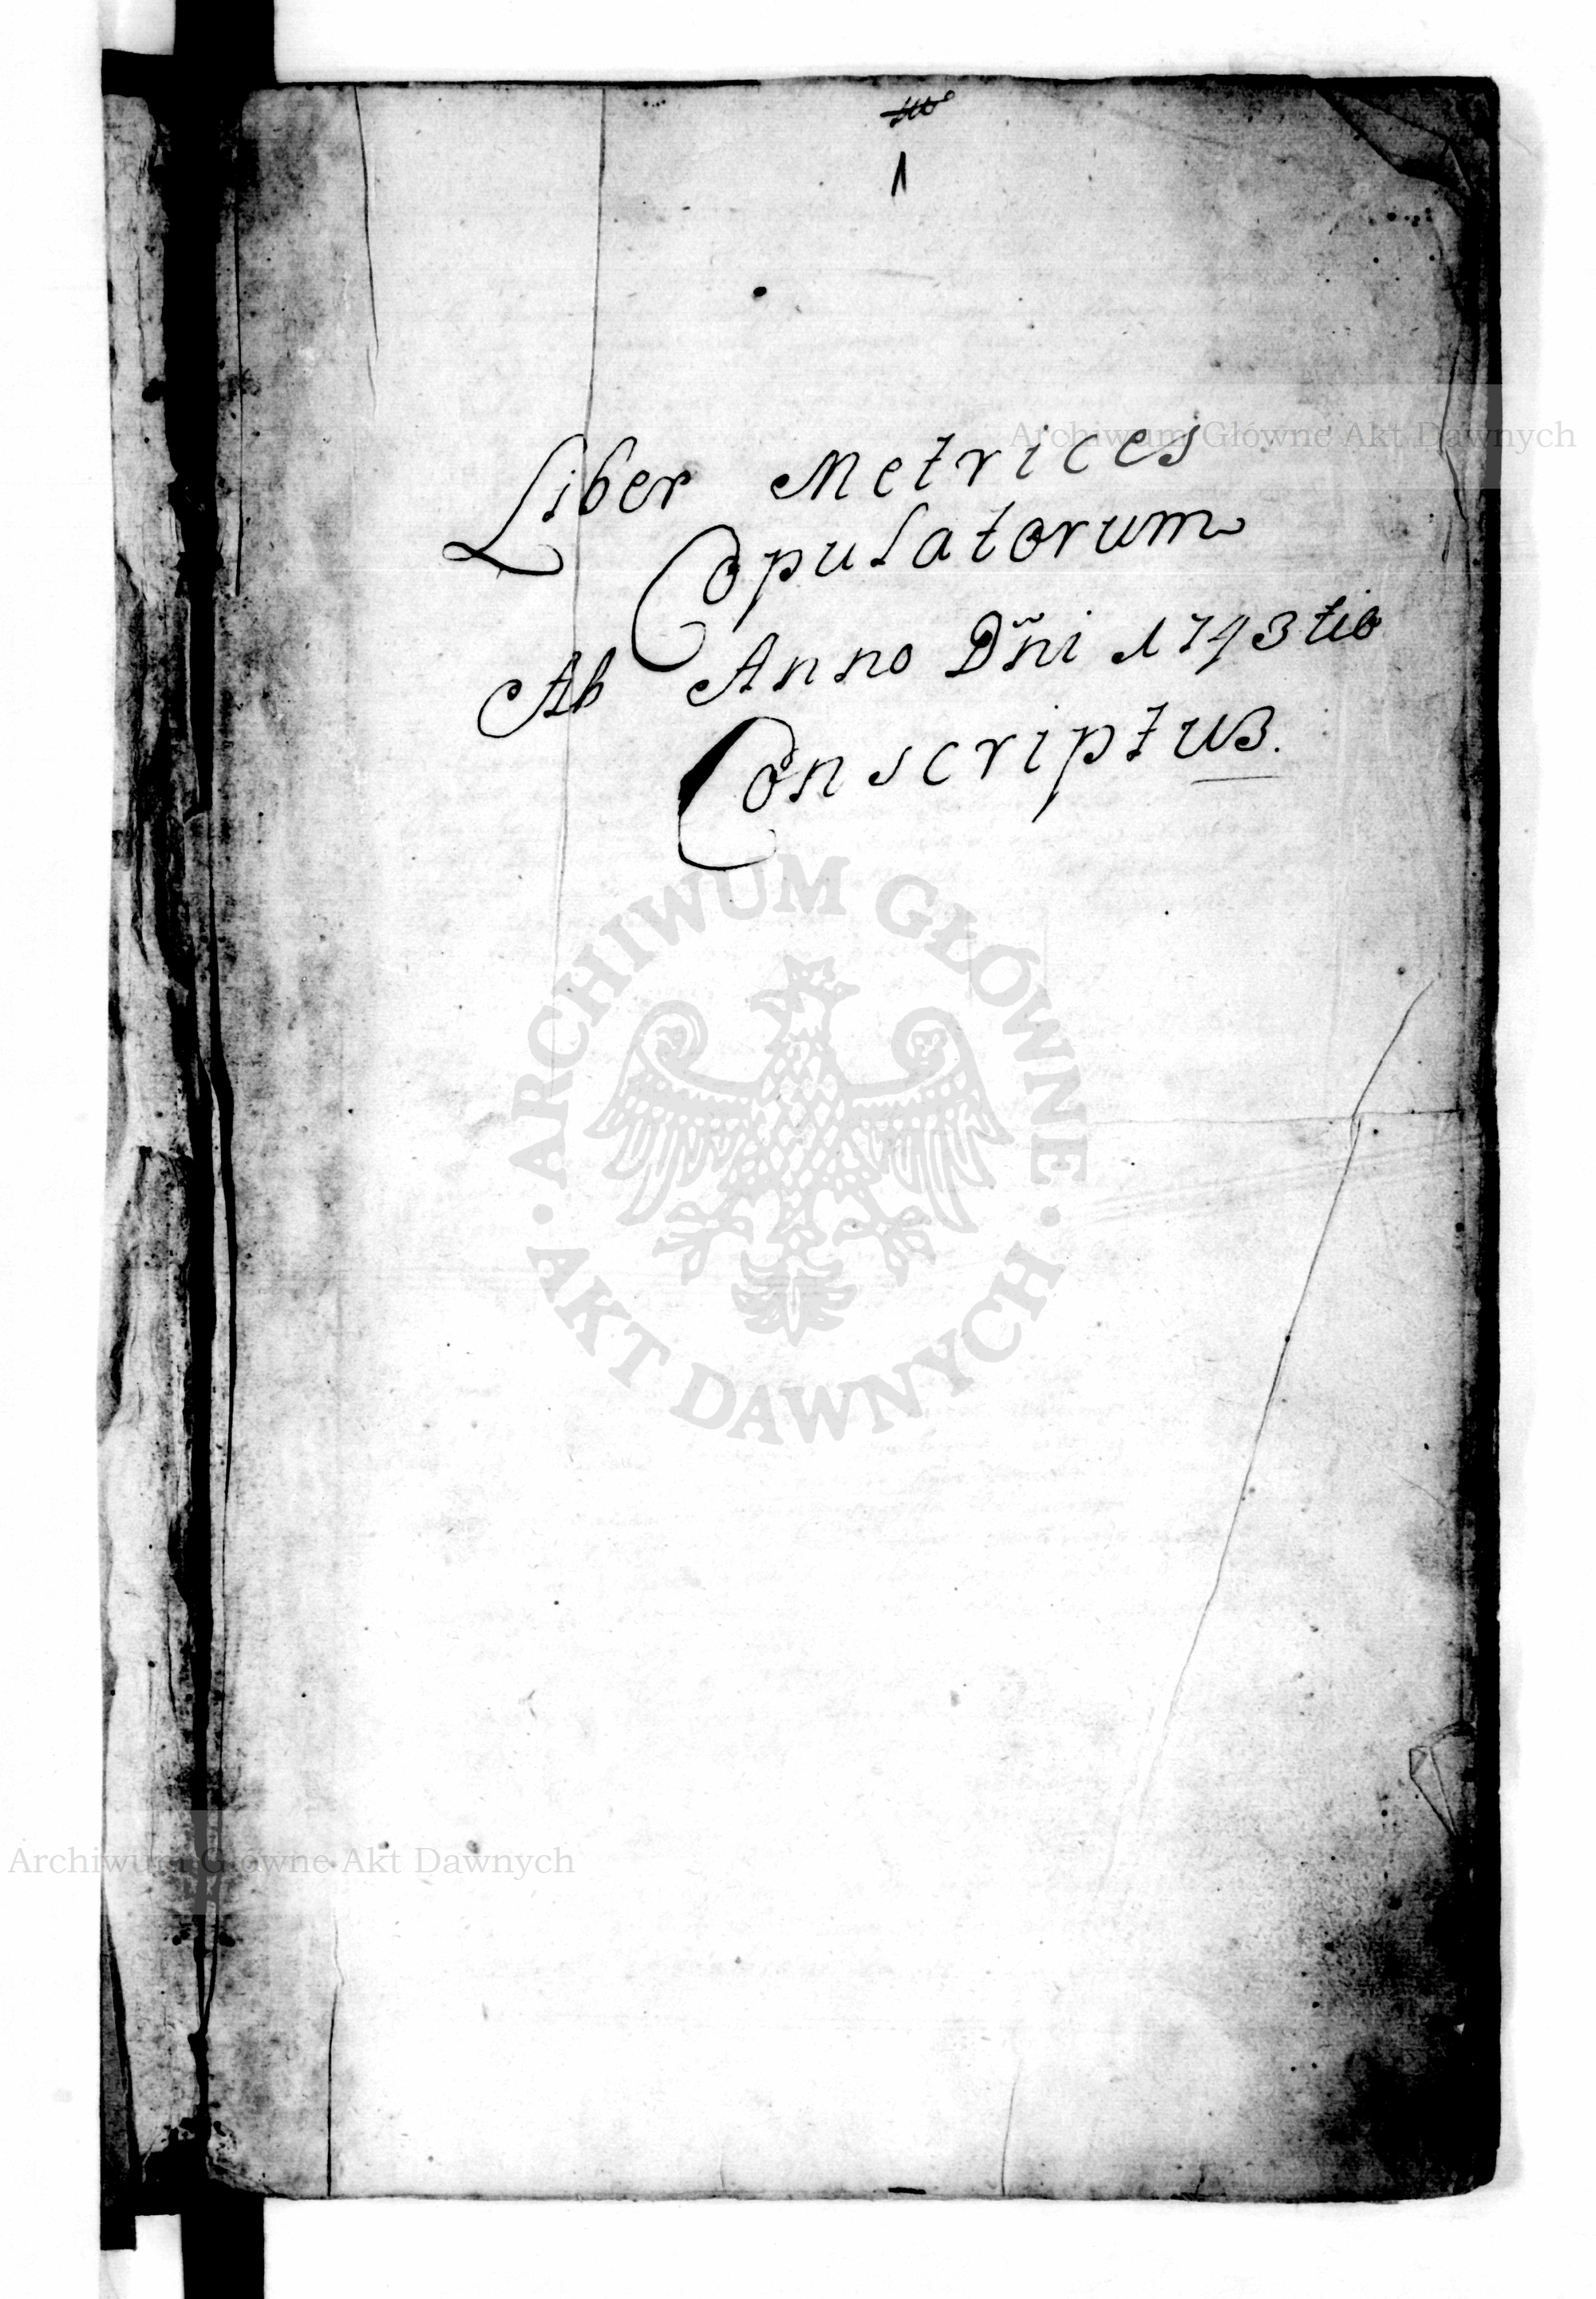 1
Liber Metrices
Copulatorum
Ab Anno Dñi 1743 tio
Conscriptus.
Archiwum Główne Akt Dawnych
ARCHIWUM GŁÓWNE
AKT DAWNYCH
Archiwum Główne Akt Dawnych